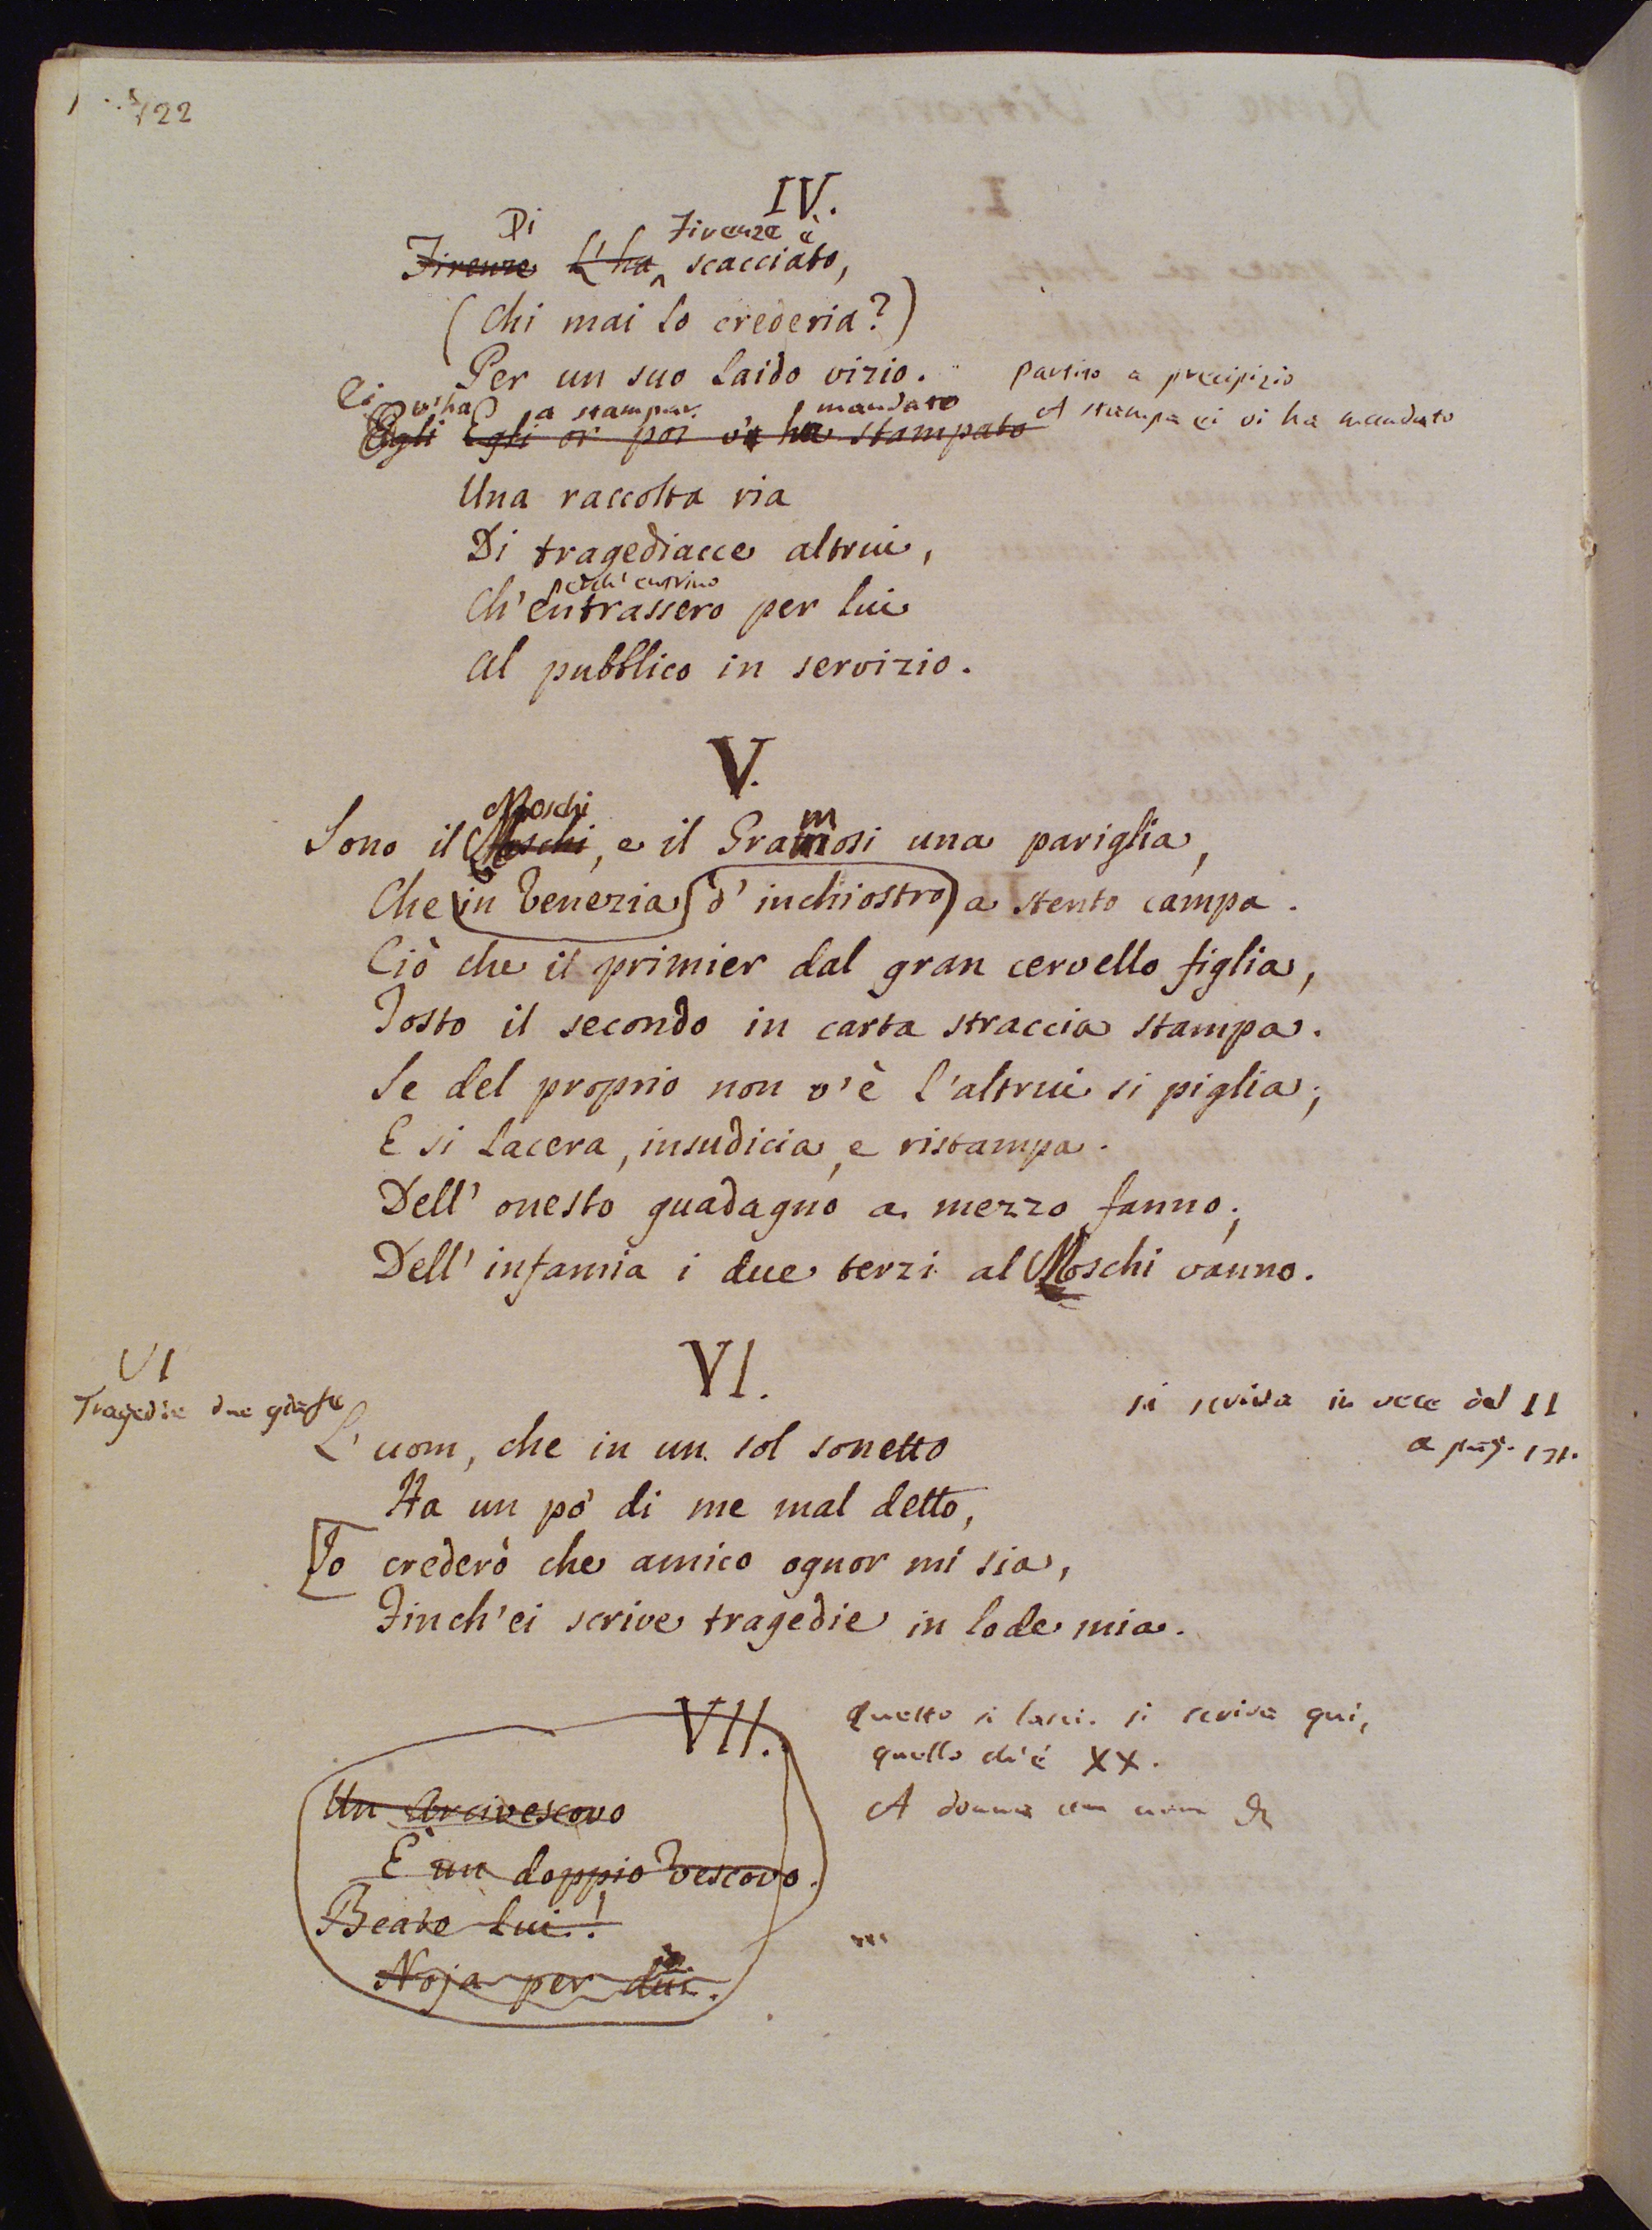 122
IV.
Di Firenze è
Firenze L'ha scacciato,
(Chi mai lo crederia?)
Per un suo laido vizio. partito a precipizio
Ei v'ha a stampar mandato A stampa ei vi ha mandato
Egli Egli or poi v'ha stampato
Una raccolta ria
Di tragediacce altrui,
perch' entrino
Ch'entrassero per lui
Al pubblico in servizio.
V.
Moschi m
Sono il Moschi, e il Gramosi una pariglia,
Che in Venezia d' inchiostro a stento campa.
Ciò che il primier dal gran cervello figlia,
Tosto il secondo in carta straccia stampa.
Se del proprio non v'è l'altrui si piglia;
E si lacera, insudicia, e ristampa.
Dell' onesto guadagno a mezzo fanno;
Dell' infamia i due terzi al Moschi vanno.
VI VI.
Tragedie due si scriva in vece del II
a pag. 121.
L'uom, che in un sol sonetto
Ha un pò di me mal detto,
Io crederò che amico ognor mi sia,
Finch'ei scrive tragedie in lode mia.
VII. Questo si lasci. si scriva qui,
quello ch'è XX.
Un Arcivescovo A donna
È un doppio Vescovo.
Beato lui!
Noja per dui.